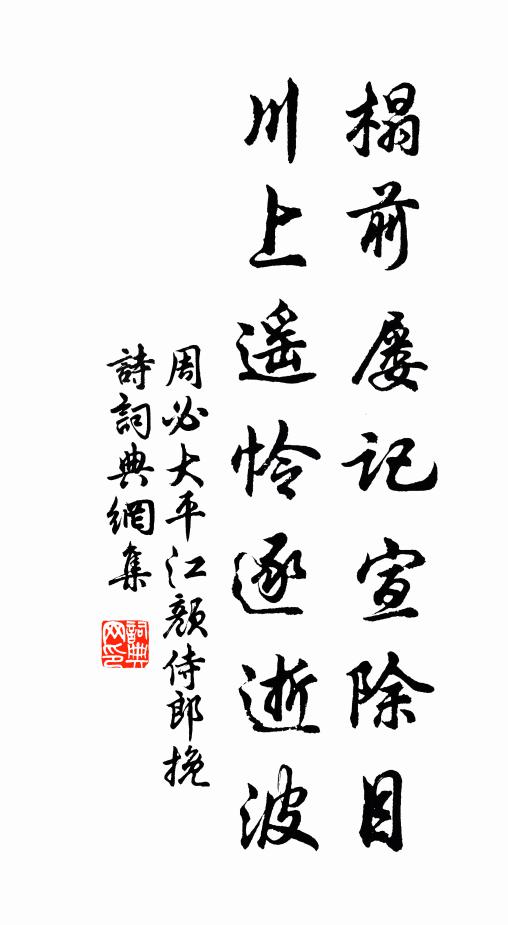 榻前屡记宣除目
川上遥怜逐逝波
周必大平江颜侍郎挽
詩詞典網集
詞典网印